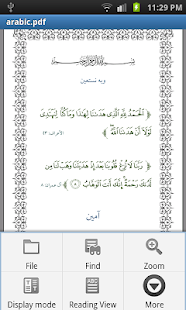 11:29 PM
arabic.pdf
بسم الله الرحمن الرحيم
وبه نستعين
الْحَمْدُ لِلَّهِ الَّذِي هَدَانَا لِهَٰذَا وَمَا كُنَّا لِنَهْتَدِيَ
لَوْلَا أَنْ هَدَانَا اللَّهُ
رَبَّنَا لَا تُزِغْ قُلُوبَنَا بَعْدَ إِذْ هَدَيْتَنَا وَهَبْ لَنَا مِن
لَّدُنكَ رَحْمَةً إِنَّكَ أَنتَ الْوَهَّابُ
آمين
File Find Zoom
Display mode Reading View More